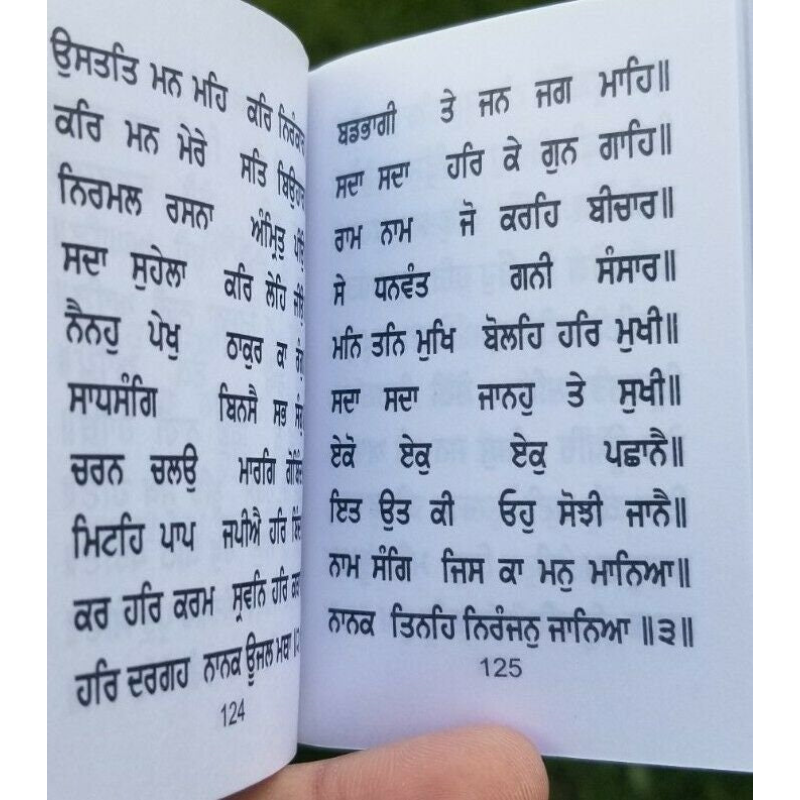 ਉਸਤਤਿ ਮਨ ਮਹਿ ਕਰਿ
ਕਰਿ ਮਨ ਮੇਰੇ ਸਤਿ ਬਿਉਹਾਰ
ਨਿਰਮਲ ਰਸਨਾ ਅੰਮ੍ਰਿਤੁ
ਸਦਾ ਸੁਹੇਲਾ ਕਰਿ ਲੇਹਿ
ਨੈਨਹੁ ਪੇਖੁ ਠਾਕੁਰ ਕਾ
ਸਾਧਸੰਗਿ ਬਿਨਸੈ ਸਭ
ਚਰਨ ਚਲਉ ਮਾਰਗਿ
ਮਿਟਹਿ ਪਾਪ ਜਪੀਐ ਹਰਿ
ਕਰ ਹਰਿ ਕਰਮ ਸ੍ਰਵਨਿ ਹਰਿ
ਹਰਿ ਦਰਗਹ ਨਾਨਕ ਊਜਲ ਮਥਾ
124
ਬਡਭਾਗੀ ਤੇ ਜਨ ਜਗ ਮਾਹਿ॥
ਸਦਾ ਸਦਾ ਹਰਿ ਕੇ ਗੁਨ ਗਾਹਿ॥
ਰਾਮ ਨਾਮ ਜੋ ਕਰਹਿ ਬੀਚਾਰ॥
ਸੇ ਧਨਵੰਤ ਗਨੀ ਸੰਸਾਰ॥
ਮਨਿ ਤਨਿ ਮੁਖਿ ਬੋਲਹਿ ਹਰਿ ਮੁਖੀ॥
ਸਦਾ ਸਦਾ ਜਾਨਹੁ ਤੇ ਸੁਖੀ॥
ਏਕੋ ਏਕੁ ਏਕੁ ਪਛਾਨੈ॥
ਇਤ ਉਤ ਕੀ ਓਹੁ ਸੋਝੀ ਜਾਨੈ॥
ਨਾਮ ਸੰਗਿ ਜਿਸ ਕਾ ਮਨੁ ਮਾਨਿਆ॥
ਨਾਨਕ ਤਿਨਹਿ ਨਿਰੰਜਨੁ ਜਾਨਿਆ ॥੩॥
125